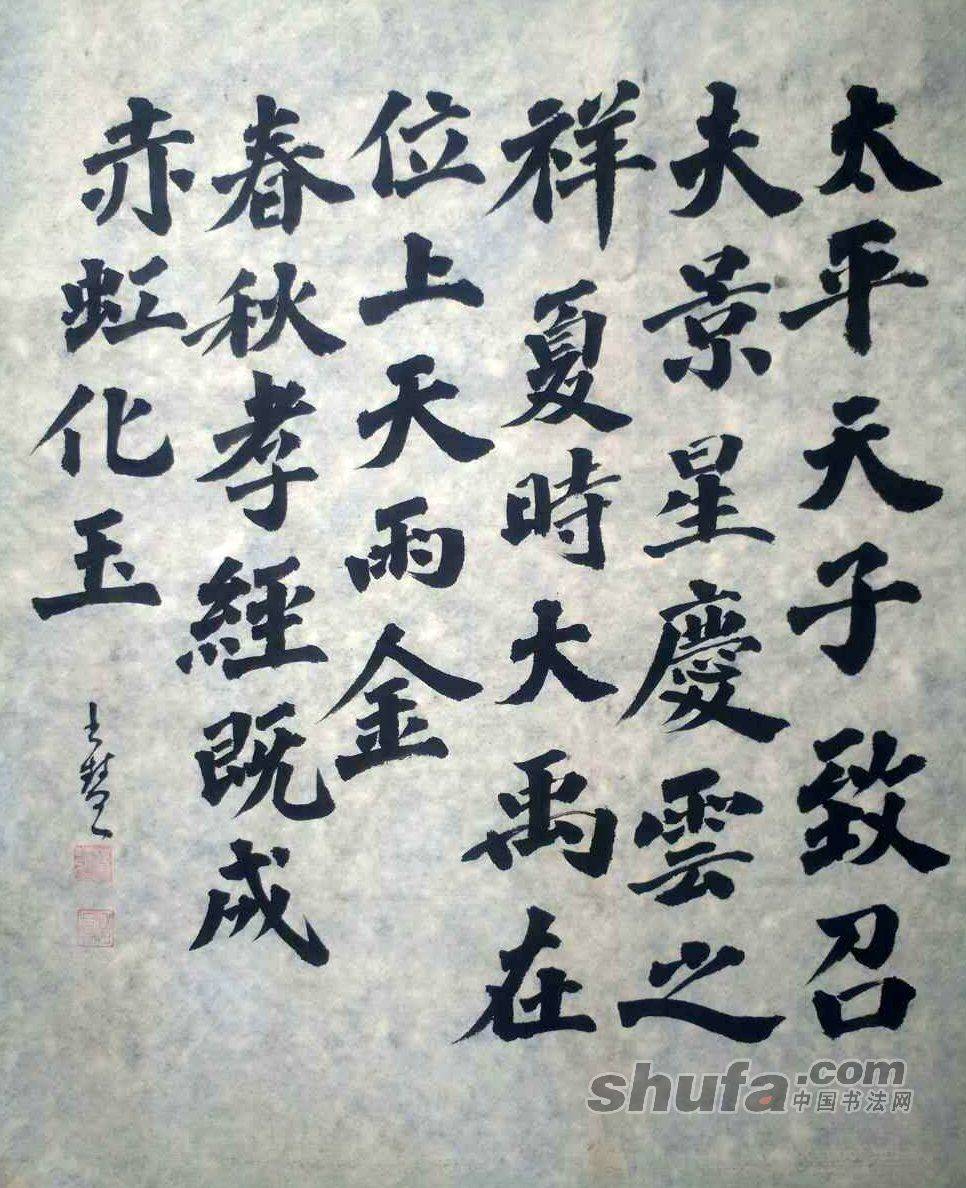 太平天子致召
夫景星慶雲之
祥夏時大禹在
位上天雨金
春秋孝經既成
赤虹化玉
shufa.com
中国书法网